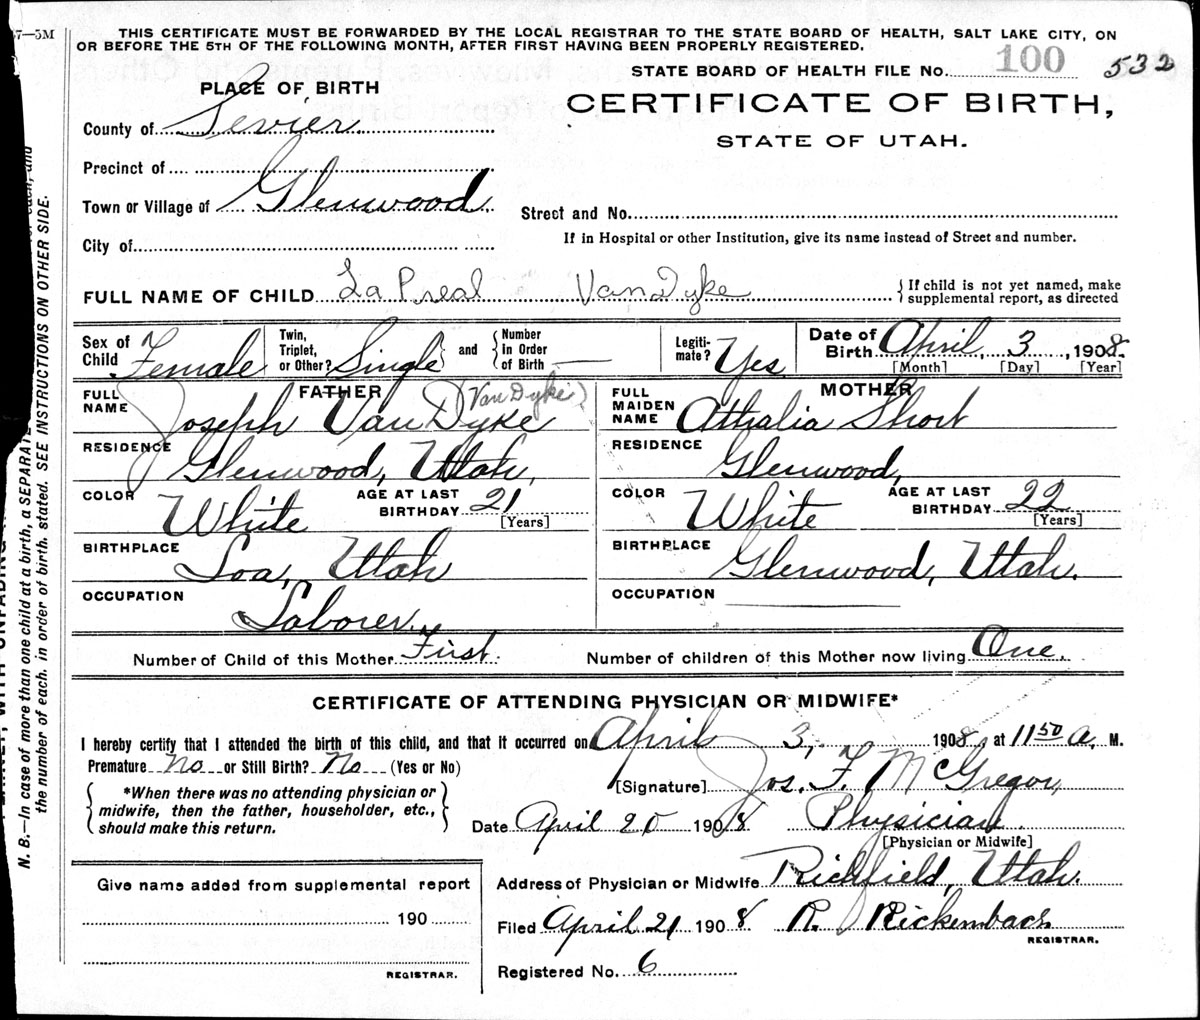 57—5M
THIS CERTIFICATE MUST BE FORWARDED BY THE LOCAL REGISTRAR TO THE STATE BOARD OF HEALTH, SALT LAKE CITY, ON
OR BEFORE THE 5TH OF THE FOLLOWING MONTH, AFTER FIRST HAVING BEEN PROPERLY REGISTERED.
STATE BOARD OF HEALTH FILE No. 100 532
PLACE OF BIRTH
CERTIFICATE OF BIRTH,
STATE OF UTAH.
County of Sevier
Precinct of
Town or Village of Glenwood.
Street and No.
City of
If in Hospital or other Institution, give its name instead of Street and number.
FULL NAME OF CHILD La Preal Van Dyke { If child is not yet named, make
supplemental report, as directed
Sex of Child Female
Twin, Triplet, or Other? Single and { Number In Order of Birth —
Legitimate? Yes
Date of Birth April, 3, 1908.
[Month] [Day] [Year]
FATHER
FULL NAME Joseph Van Dyke (Van Dyke)
RESIDENCE Glenwood, Utah,
COLOR White AGE AT LAST BIRTHDAY 21
[Years]
BIRTHPLACE Loa, Utah
OCCUPATION Laborer.
MOTHER
FULL MAIDEN NAME Athalia Short
RESIDENCE Glenwood,
COLOR White AGE AT LAST BIRTHDAY 22
[Years]
BIRTHPLACE Glenwood, Utah.
OCCUPATION
Number of Child of this Mother First. Number of children of this Mother now living One.
CERTIFICATE OF ATTENDING PHYSICIAN OR MIDWIFE*
I hereby certify that I attended the birth of this child, and that it occurred on April 3, 1908, at 11 50 a. M.
Premature No or Still Birth? No (Yes or No)
[Signature] Jos. F. McGregor,
{ *When there was no attending physician or
midwife, then the father, householder, etc.,
should make this return. }
Date April 20 1908 Physician.
[Physician or Midwife]
Address of Physician or Midwife Richfield, Utah.
Give name added from supplemental report
190
REGISTRAR.
Filed April 21 1908 R. Rickenbach
REGISTRAR.
Registered No. 6
N. B.—In case of more than one child at a birth, a SEPARATE each, and
the number of each. in order of birth. stated. SEE INSTRUCTIONS ON OTHER SIDE.